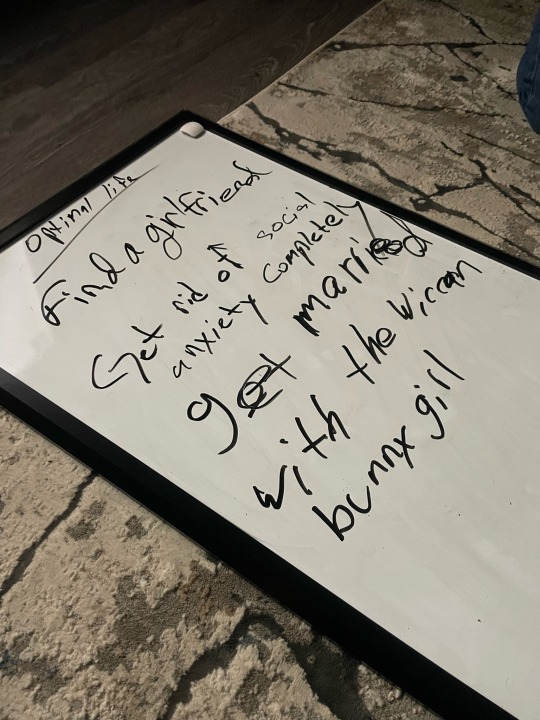 Optimal life
Find a girlfriend
Get rid of social
anxiety completely
get married
with the Wiccan
bunny girl